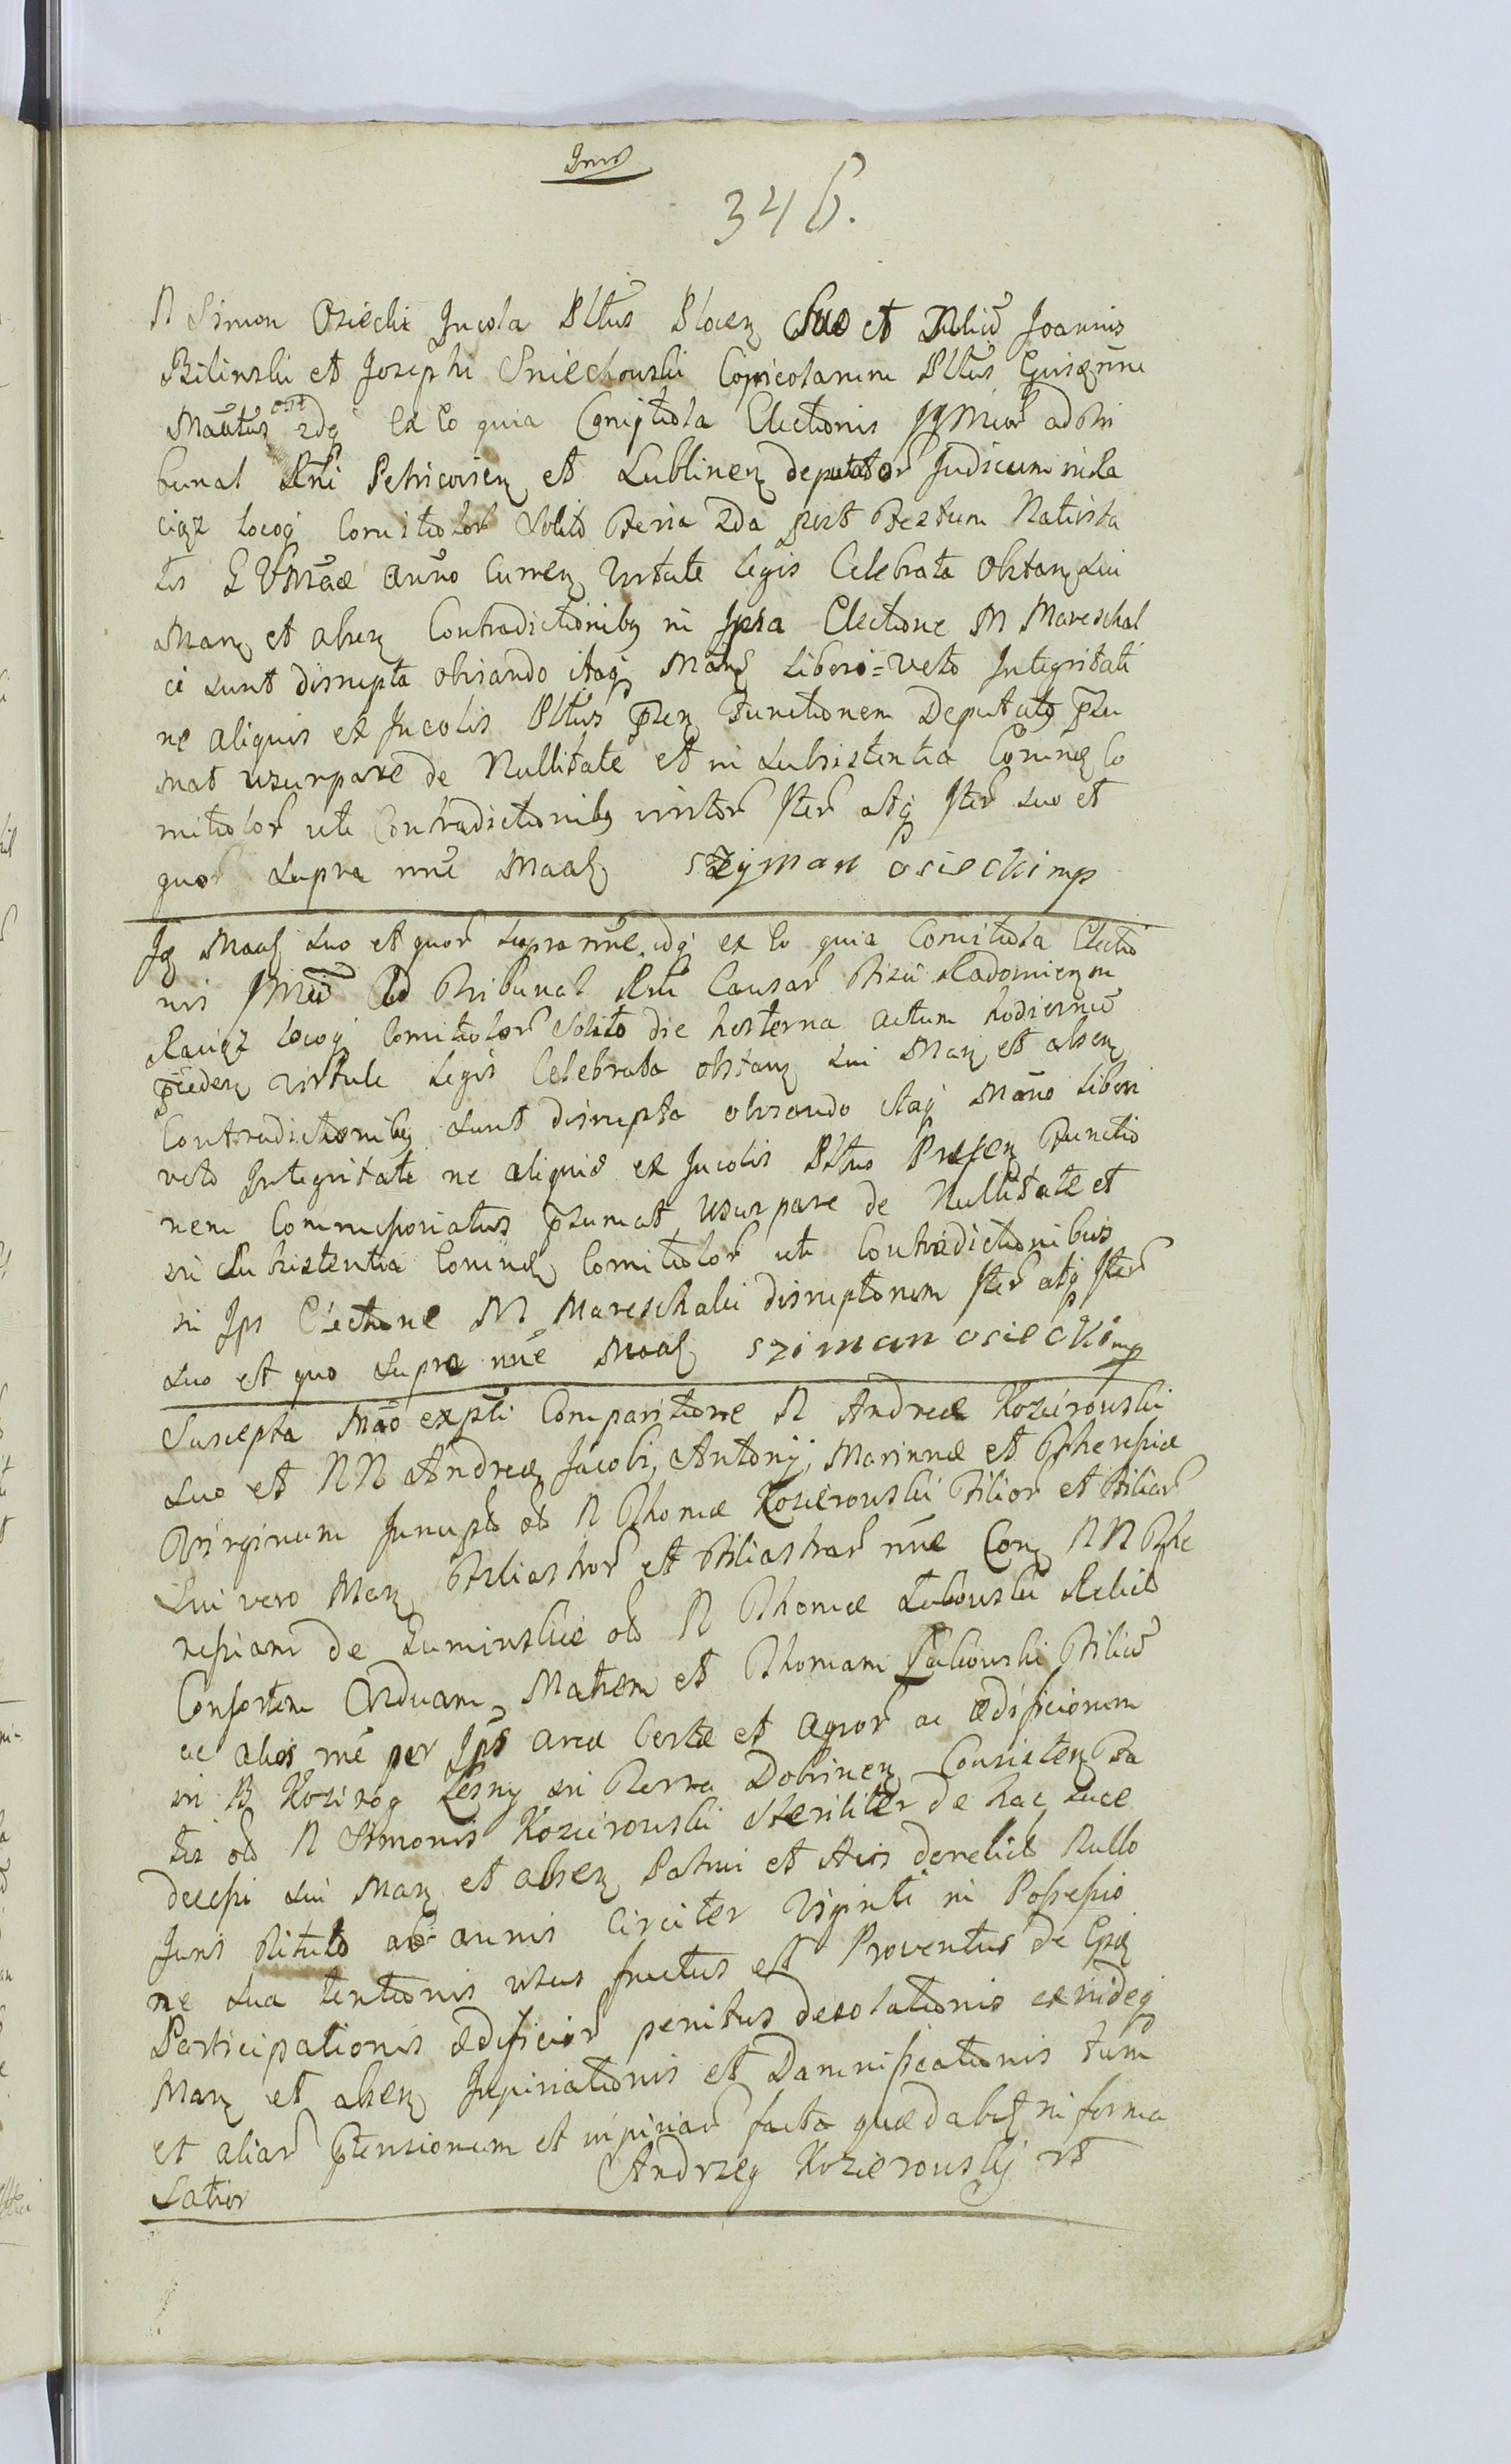 346.
N Simon Osiecki Incola Pltus Plocen Suo et Nbliu Joannis
Bilinski et Josephi Sniechowski Copricolarum Pltus Eius nne
Mautus est 2dq Ex Eo quia Comitiola Electionis JJMior ad Tri
bunal Rni Petricovien et Lublinen deputator Judicum in Ra
ciąz locoq Comitiolor Solito Feria 2da post Festum Nativita
tis B VMriae anno Curren Virtute Legis Celebrata Obstan Sui
Man et absen Contradictionibq in Ipsa Electione M Mareschal
ci sunt disrupta obviando itaq Man Liberi=veto Integritati
ne aliquis ex Incolis Pltus pnsen Functionem Deputatq psu
mat usurpare de Nullitate et in Subsistentia Comine Co
mitiolor uti Contradictionibq Iter atq Iter Suo et
quor Supra nne Maał Szyman osiecki mp
Iq Maał Suo et quor Supra nne idq ex Eo quia Comitiola Electio
nis JMciu Ad Tribunal Rni Causar Fisci Radomien in
Raciąz locoq Comitiolor Solito die hesterna actum hodiernu
pceden Virtute Legis Celebrata obstan Sui Man et absen
Contradictionibq sunt disrupta obviando itaq Mano Liberi
veto Integritate ne aliquis ex Incolis Pltus Præsen Functio
nem Commissoriatus psumat Usurpare de Nullitate et
in Subsistentia Comine Comitiolor uti Contradictionibus
in Ips Electione M Mareschalci disruptorum Iter atq Iter
Suo et quo Supra nne Maał sziman osiecki mp
Suscepta Mao expti Comparitione N Andreæ Kozierowski
Suo et NN Andreæ, Jacobi, Antonij, Mariannæ et Theressiæ
Virginum Inncupt ol N Thomæ Kozierowski Filior et Filiar
Sui vero Man Filiastror et Filiastrar nne Con NN The
ressiam de Luminskie ol N Thomæ Lubowski Relict
Consortem Viduam, Matrem et Thomam Lubowski Filiu
ac alios rne per Ips areæ Certæ et Agror ac ædificiorum
in B Kozirog Lesny in Terra Dobrinen Consisten Fa
tis ol N Simonis Kozierowski Steriliter de hac Luce
decessi Sui Man et absen Patrui et Avis derelict Nullo
Juris Titulo ab annis Circiter Viginti in Possessio
ne Sua tentionis usus fructus et Proventus de Eisd
Participationis ædificior penitus desolationis exindeq
Man et absen Inpiriationis et Damnificationis tum
et aliar ptensionum et inpiriar facta quæ dabit in forma
Latior Andrzey Kozierowskÿ